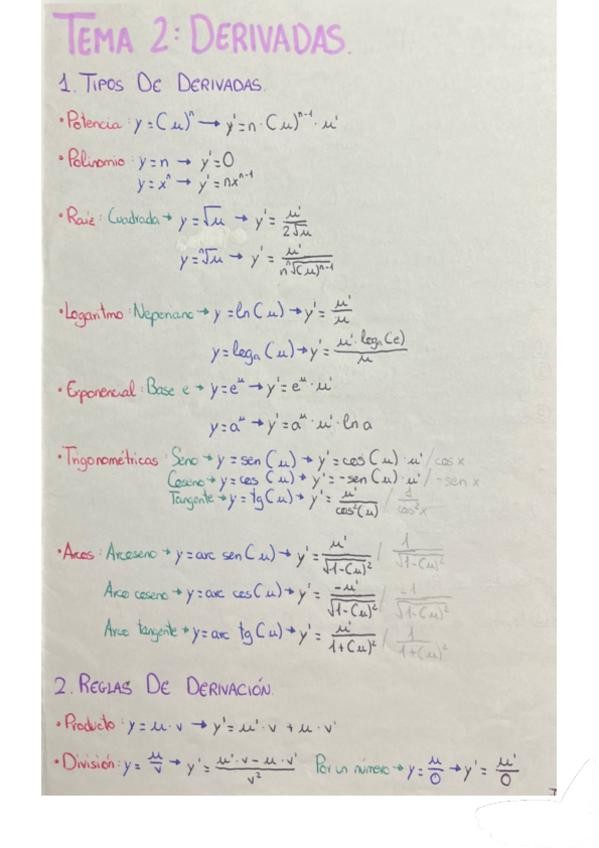 TEMA 2: DERIVADAS.
1. TIPOS DE DERIVADAS.
• Potencia: y = (u)ⁿ → y' = n · (u)ⁿ⁻¹ · u'
• Polinomio: y = n → y' = 0
y = xⁿ → y' = nxⁿ⁻¹
• Raíz: Cuadrada → y = √u → y' = u' / 2√u
y = ⁿ√u → y' = u' / n ⁿ√(u)ⁿ⁻¹
• Logaritmo: Neperiano → y = ln(u) → y' = u' / u
y = logₐ(u) → y' = u' · logₐ(e) / u
• Exponencial: Base e → y = eᵘ → y' = eᵘ · u'
y = aᵘ → y' = aᵘ · u' · ln a
• Trigonométricas: Seno → y = sen(u) → y' = cos(u) · u' / cos x
Coseno → y = cos(u) → y' = -sen(u) · u' / -sen x
Tangente → y = tg(u) → y' = u' / cos²(u) / 1 / cos²x
• Arcos: Arcoseno → y = arc sen(u) → y' = u' / √1-(u)² / 1 / √1-(u)²
Arco coseno → y = arc cos(u) → y' = -u' / √1-(u)² / -1 / √1-(u)²
Arco tangente → y = arc tg(u) → y' = u' / 1+(u)² / 1 / 1+(u)²
2. REGLAS DE DERIVACIÓN.
• Producto: y = u · v → y' = u' · v + u · v'
• División: y = u / v → y' = u' · v - u · v' / v² Por un número → y = u / 0 → y' = u' / 0